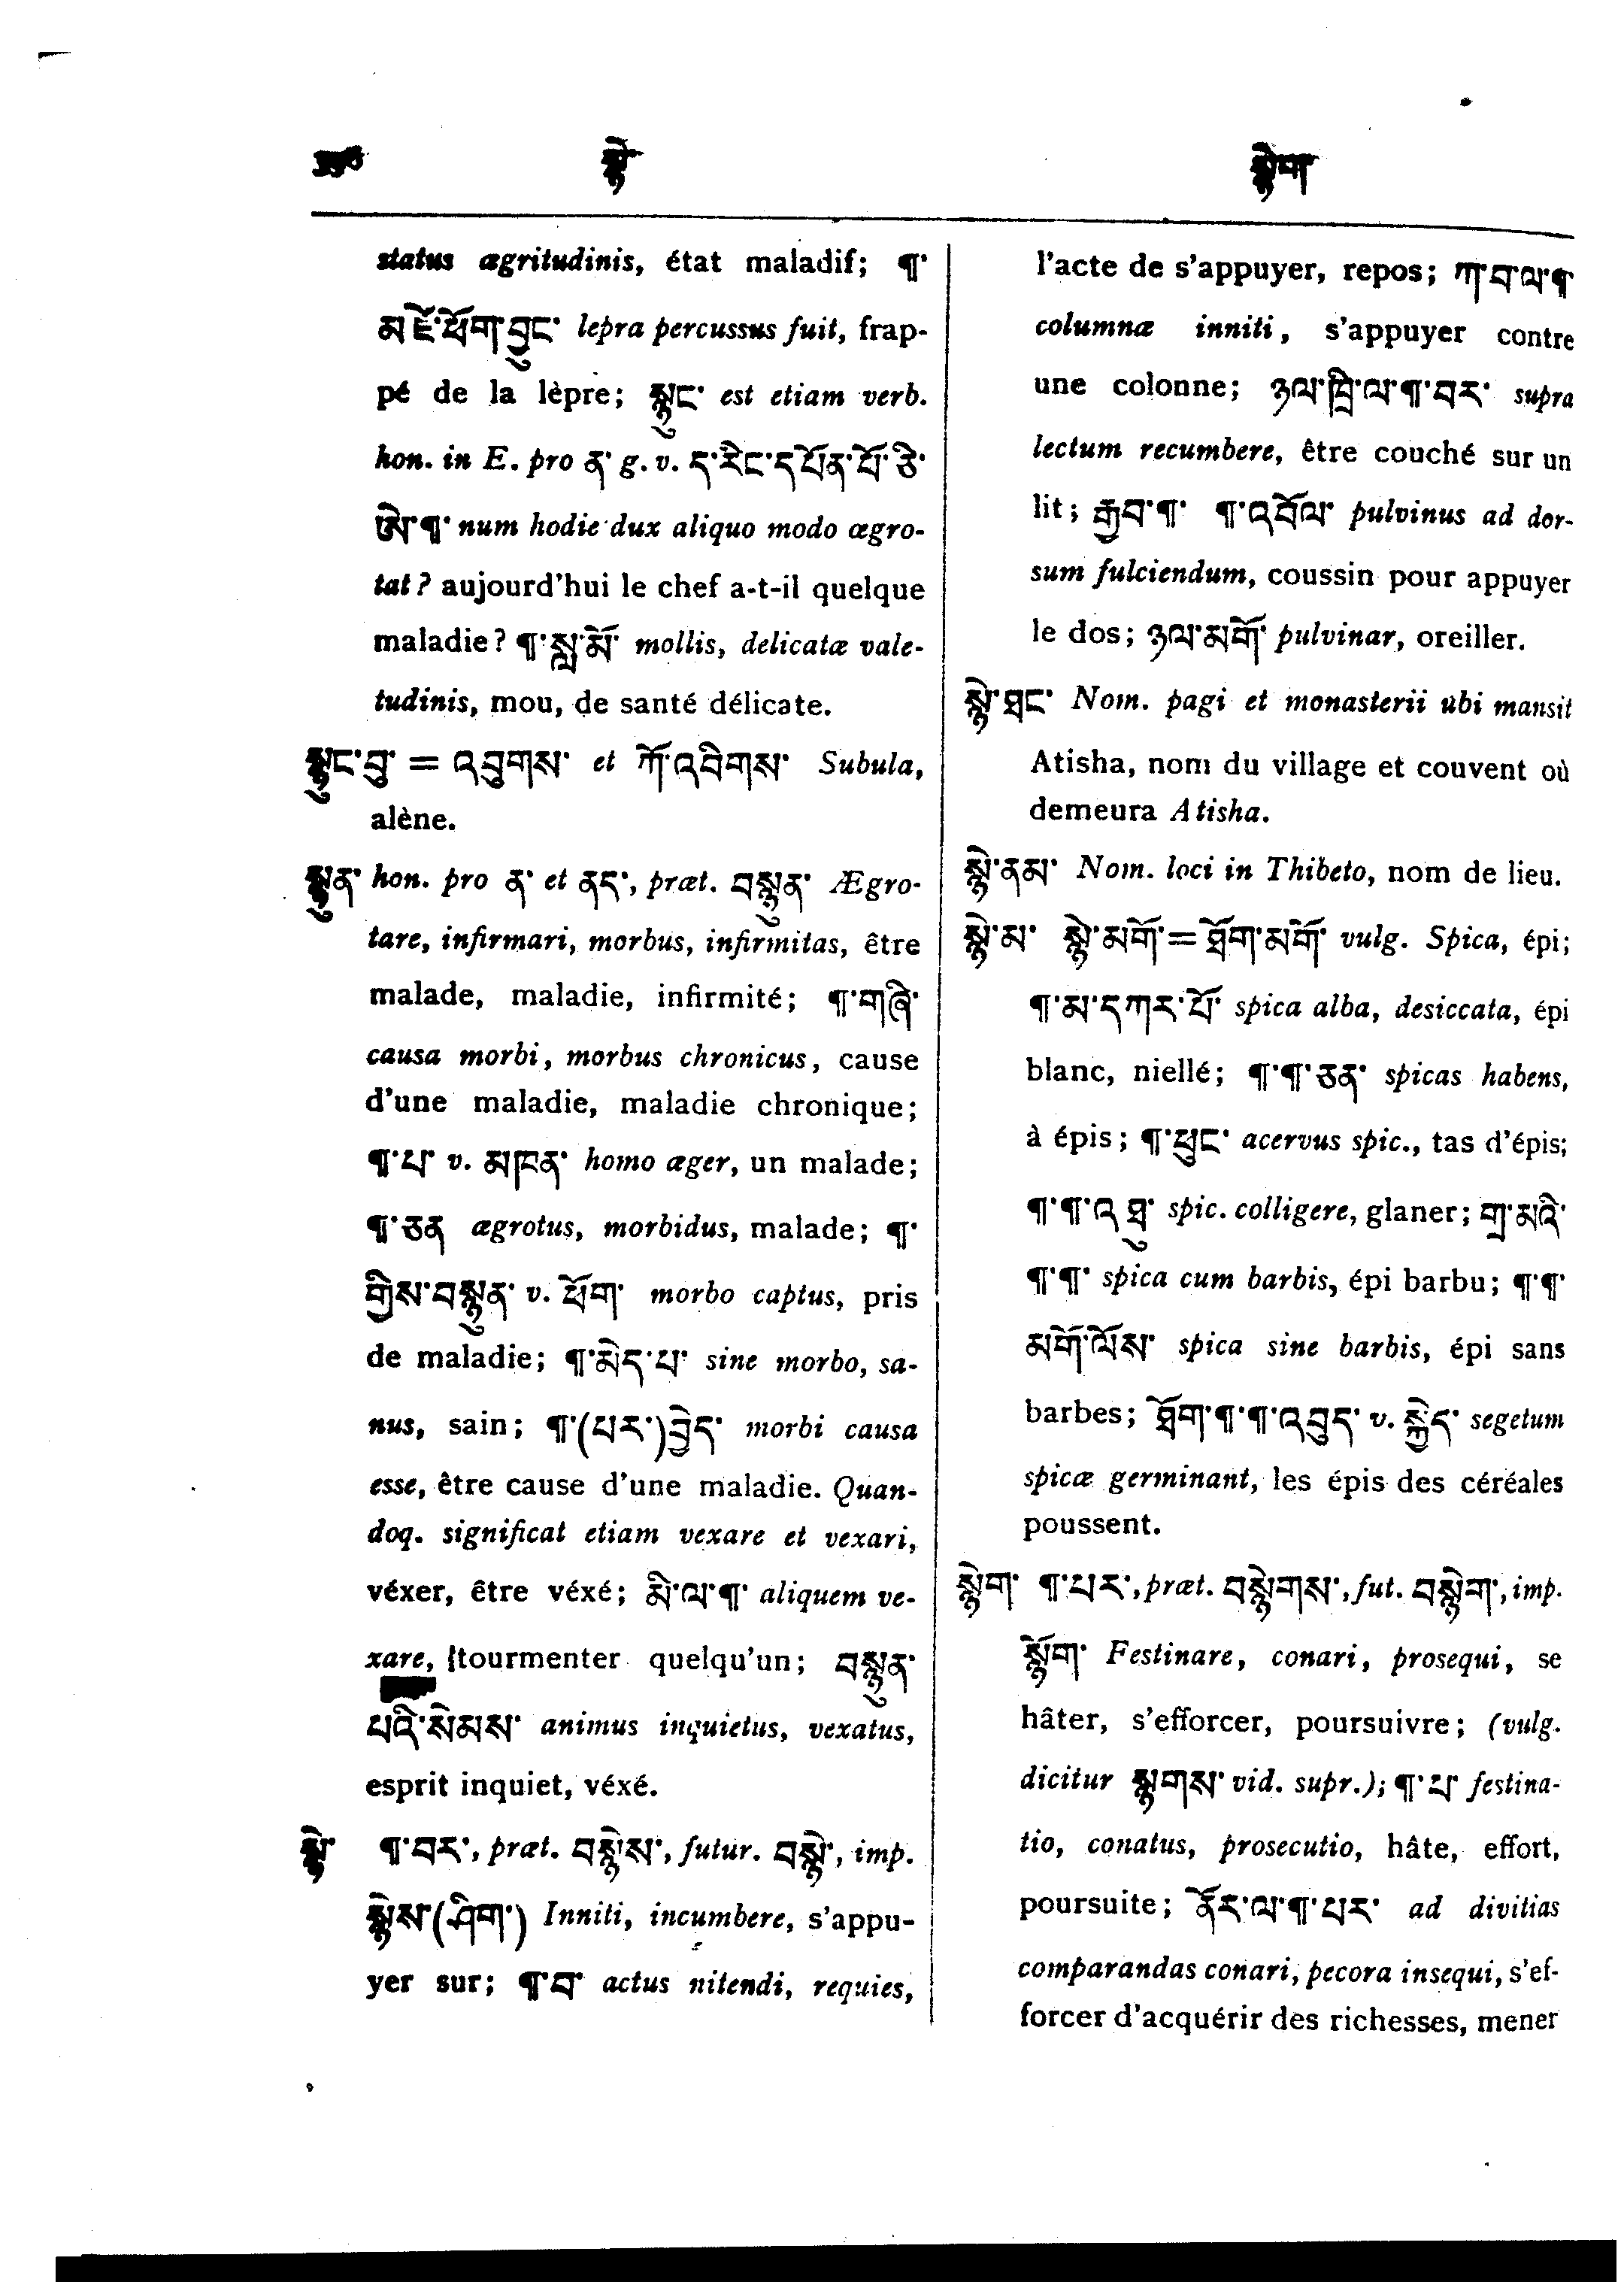 སྙེ་
སྙེག་
status ægritudinis, état maladif; ¶་
མཛེ་ཕོག་བྱུང་ lepra percussus fuit, frap-
pé de la lèpre; སྙུང་ est etiam verb.
hon. in E. pro ན་ g. v. ད་རིང་དཔོན་པོ་ཅི་
ཨེ་¶་ num hodie dux aliquo modo ægro-
tat? aujourd'hui le chef a-t-il quelque
maladie? ¶་སླ་མོ་ mollis, delicatæ vale-
tudinis, mou, de santé délicate.
སྙུང་བུ་ = འབུགས་ et ཀོ་འབིགས་ Subula,
alène.
སྙུན་ hon. pro ན་ et ནད་, præt. བསྙུན་ Ægro-
tare, infirmari, morbus, infirmitas, être
malade, maladie, infirmité; ¶་གཞི་
causa morbi, morbus chronicus, cause
d'une maladie, maladie chronique;
¶་པ་ v. མཁན་ homo æger, un malade;
¶་ཅན ægrotus, morbidus, malade; ¶་
གྱིས་བསྙུན་ v. ཕོག་ morbo captus, pris
de maladie; ¶་མེད་པ་ sine morbo, sa-
nus, sain; ¶་(པར་)བྱེད་ morbi causa
esse, être cause d'une maladie. Quan-
doq. significat etiam vexare et vexari,
véxer, être véxé; མི་ལ་¶་ aliquem ve-
xare, tourmenter quelqu'un; བསྙུན་
པའི་སེམས་ animus inquietus, vexatus,
esprit inquiet, véxé.
སྙེ་ ¶་བར་, præt. བསྙེས་, futur. བསྙེ་, imp.
སྙེས་(ཤིག་) Inniti, incumbere, s'appu-
yer sur; ¶་བ་ actus nitendi, requies,
l'acte de s'appuyer, repos; ཀ་བ་ལ་¶་
columnæ inniti, s'appuyer contre
une colonne; ཉལ་ཁྲི་ལ་¶་བར་ supra
lectum recumbere, être couché sur un
lit; རྒྱབ་¶་ ¶་འབོལ་ pulvinus ad dor-
sum fulciendum, coussin pour appuyer
le dos; ཉལ་མགོ་ pulvinar, oreiller.
སྙེ་ཐང་ Nom. pagi et monasterii ubi mansit
Atisha, nom du village et couvent où
demeura Atisha.
སྙེ་ནམ་ Nom. loci in Thibeto, nom de lieu.
སྙེ་མ་ སྙེ་མགོ་=ཐོག་མགོ་ vulg. Spica, épi;
¶་མ་དཀར་པོ་ spica alba, desiccata, épi
blanc, niellé; ¶་¶་ཅན་ spicas habens,
à épis; ¶་ཕུང་ acervus spic., tas d'épis;
¶་¶་འཐུ་ spic. colligere, glaner; གྲ་མའི་
¶་¶་ spica cum barbis, épi barbu; ¶་¶་
མགོ་ལོས་ spica sine barbis, épi sans
barbes; ཐོག་¶་¶་འབུད་ v. སྐྱེད་ segetum
spicæ germinant, les épis des céréales
poussent.
སྙེག་ ¶་པར་, præt. བསྙེགས་, fut. བསྙེག་, imp.
སྙོག་ Festinare, conari, prosequi, se
hâter, s'efforcer, poursuivre; (vulg.
dicitur སྙགས་ vid. supr.); ¶་པ་ festina-
tio, conatus, prosecutio, hâte, effort,
poursuite; ནོར་ལ་¶་པར་ ad divitias
comparandas conari, pecora insequi, s'ef-
forcer d'acquérir des richesses, mener